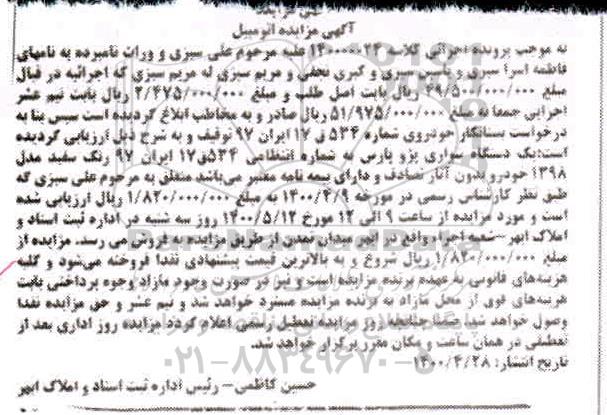 آگهی مزایده اتومبیل
به موجب پرونده اجرائی کلاسه ۱۴۰۰۰۰۰۲۴ علیه مرحوم علی سبزی و وراث نامبرده به نامهای
فاطمه اسرا سبزی و یاسین سبزی و کبری نجفی و مریم سبزی له مریم سبزی که اجرائیه در قبال
مبلغ ۴۹/۵۰۰/۰۰۰/۰۰۰ ریال بابت اصل طلب و مبلغ ۲/۴۷۵/۰۰۰/۰۰۰ ریال بابت نیم عشر
اجرایی جمعا به مبلغ ۵۱/۹۷۵/۰۰۰/۰۰۰ ریال صادر و به مخاطب ابلاغ گردیده است سپس بنا به
درخواست بستانکار خودروی شماره ۵۳۴ ق ۱۷ ایران ۹۷ توقیف و به شرح ذیل ارزیابی گردیده
است:یک دستگاه سواری پژو پارس به شماره انتظامی ۵۳۴ق۱۷ ایران ۹۷ رنگ سفید مدل
۱۳۹۸ خودروبدون آثار تصادف و دارای بیمه نامه معتبر می‌باشد متعلق به مرحوم علی سبزی که
طبق نظر کارشناس رسمی در مورخه ۱۴۰۰/۴/۹ به مبلغ ۱/۸۲۰/۰۰۰/۰۰۰ ریال ارزیابی شده
است و مورد مزایده از ساعت ۹ الی ۱۲ مورخ ۱۴۰۰/۵/۱۲ روز سه شنبه در اداره ثبت اسناد و
املاک ابهر –شعبه اجراء واقع در ابهر میدان تمدن از طریق مزایده به فروش می رسد. مزایده از
مبلغ ۱/۸۲۰/۰۰۰/۰۰۰ ریال شروع و به بالاترین قیمت پیشنهادی نقدا فروخته می‌شود و کلیه
هزینه‌های قانونی به عهده برنده مزایده است و نیز در صورت وجود مازاد وجوه پرداختی بابت
هزینه‌های فوق از محل مازاد به برنده مزایده مسترد خواهد شد و نیم عشر و حق مزایده نقدا
وصول خواهد شد. ضمنا چنانچه روز مزایده تعطیل رسمی اعلام گردد مزایده روز اداری بعد از
تعطیلی در همان ساعت و مکان مقرر برگزار خواهد شد.
تاریخ انتشار: ۱۴۰۰/۴/۲۸
حسین کاظمی – رئیس اداره ثبت اسناد و املاک ابهر
۰۲۱-۸۸۳۴۹۶۷۰-۵